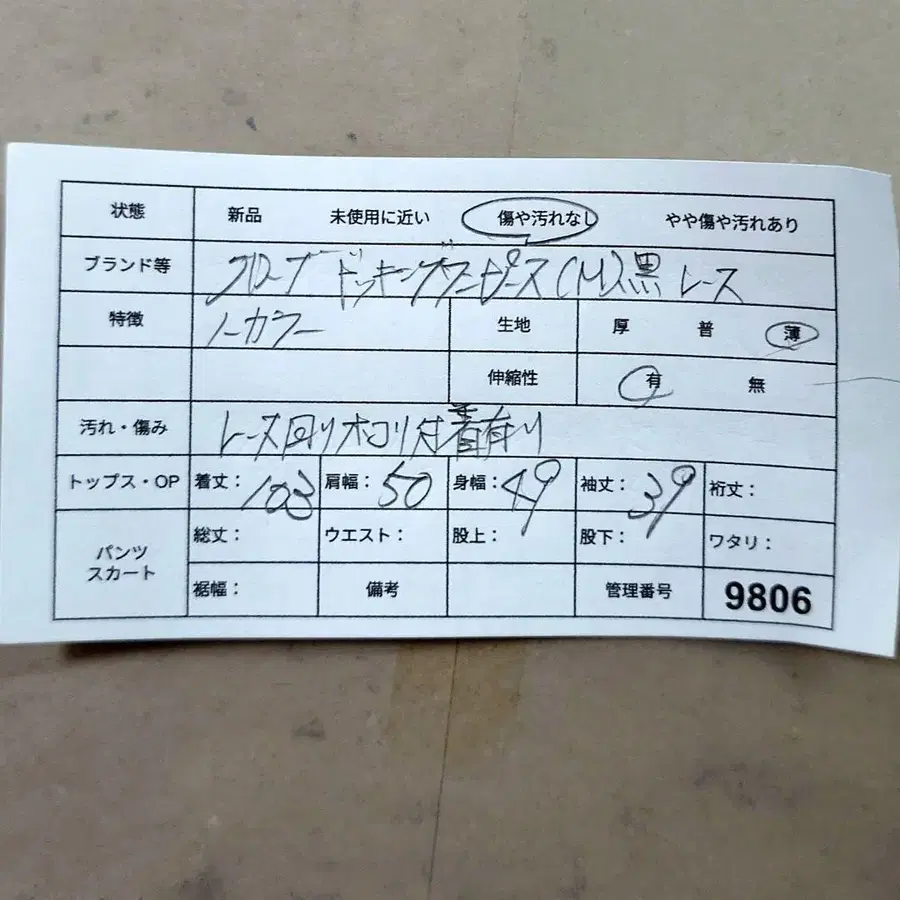 状態 新品 未使用に近い 傷や汚れなし やや傷や汚れあり
ブランド等 グローブ ドッキングワンピース(M)黒 レース
特徴 ノーカラー 生地 厚 普 薄
伸縮性 有 無
汚れ・傷み レース回りホコリ付着有り
トップス・OP 着丈: 103 肩幅: 50 身幅: 49 袖丈: 39 裄丈:
パンツ スカート 総丈: ウエスト: 股上: 股下: ワタリ:
裾幅: 備考 管理番号 9806